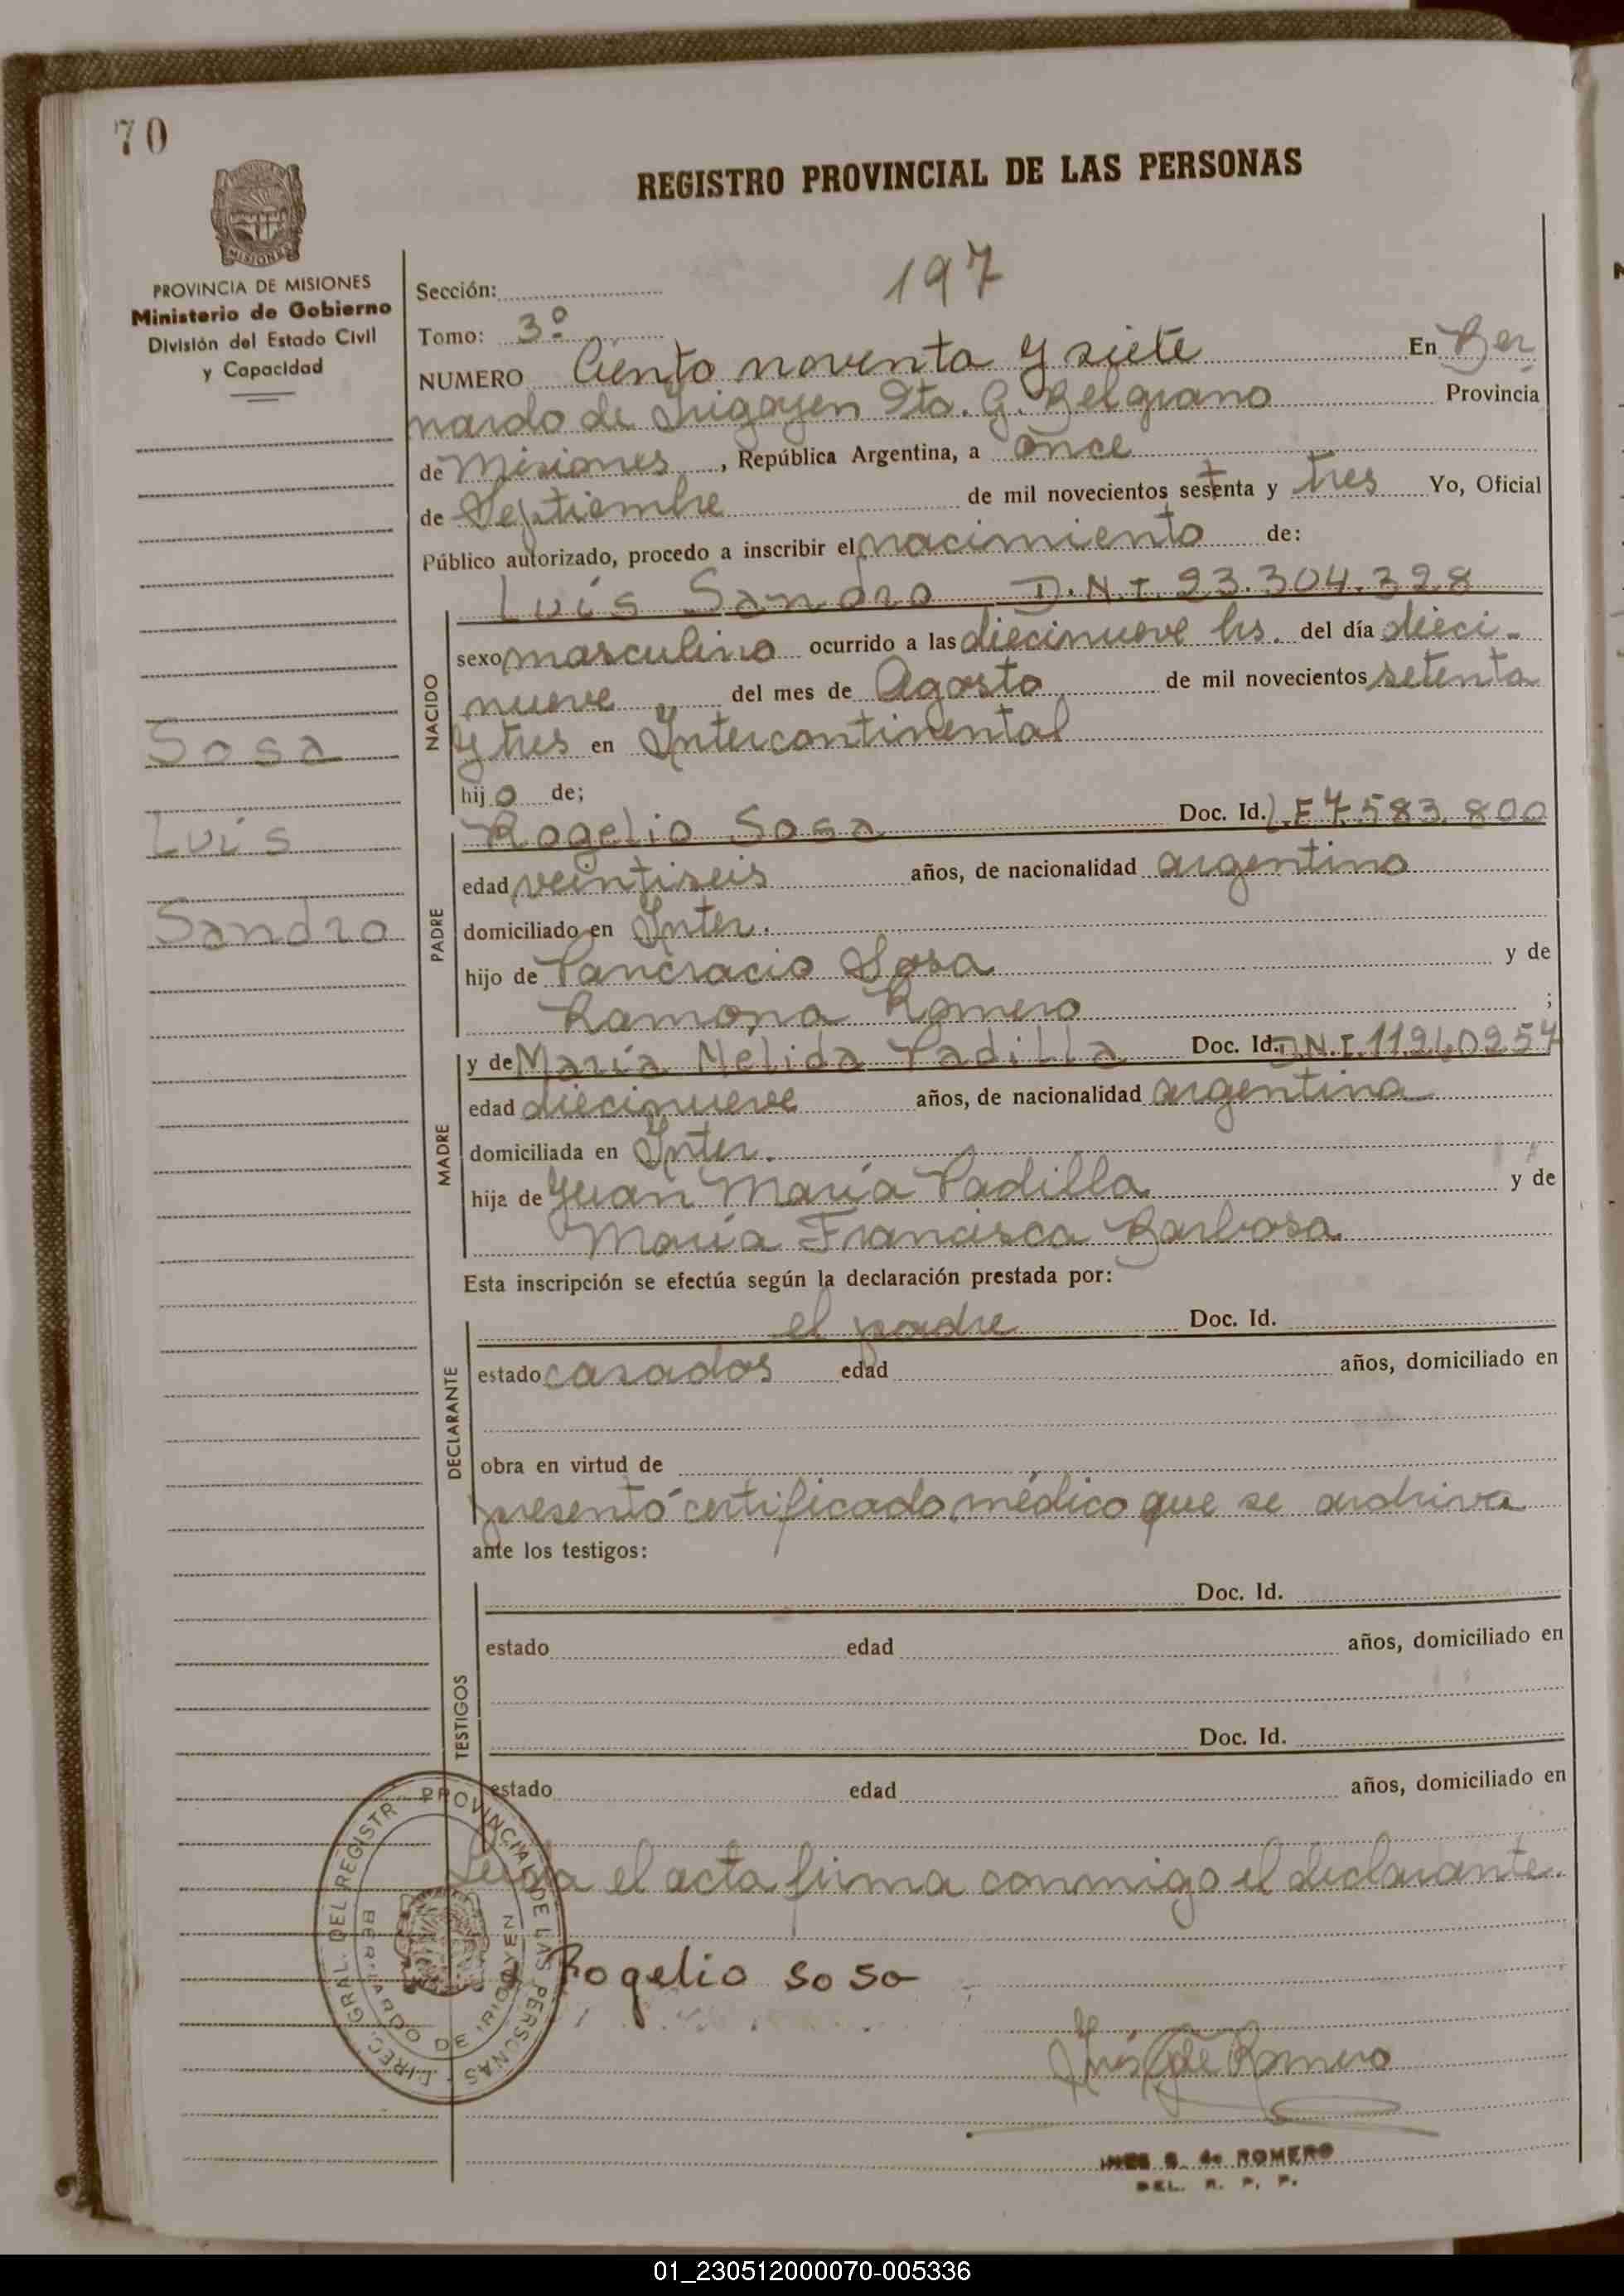 70
REGISTRO PROVINCIAL DE LAS PERSONAS
MISIONES
PROVINCIA DE MISIONES
Ministerio de Gobierno
División del Estado Civil
y Capacidad
Sosa
Luis
Sandro
197
Sección:
Tomo: 3º
NUMERO Ciento noventa y siete En Ber
nardo de Irigoyen Dto. G. Belgrano Provincia
de Misiones, República Argentina, a once
de Septiembre de mil novecientos setenta y tres Yo, Oficial
Público autorizado, procedo a inscribir el nacimiento de:
Luis Sandro D.N.I. 23.304.328
NACIDO
sexo masculino ocurrido a las diecinueve hs. del día dieci-
nueve del mes de Agosto de mil novecientos setenta
y tres en Intercontinental
hijo de;
PADRE
Rogelio Sosa Doc. Id. L.E 7.583.800
edad veintiseis años, de nacionalidad argentino
domiciliado en Inter.
hijo de Pancracio Sosa y de
Ramona Romero ;
MADRE
y de María Nélida Padilla Doc. Id. D.N.I. 11260257
edad diecinueve años, de nacionalidad argentina
domiciliada en Inter.
hija de Juan María Padilla y de
María Francisca Barbosa
Esta inscripción se efectúa según la declaración prestada por:
DECLARANTE
el padre Doc. Id.
estado casados edad años, domiciliado en
obra en virtud de
presentó certificado médico que se archiva
ante los testigos:
TESTIGOS
Doc. Id.
estado edad años, domiciliado en
Doc. Id.
estado edad años, domiciliado en
Leida el acta firma conmigo el declarante.
DIREC. GRAL. DEL REGISTR PROVINCIAL DE LAS PERSONAS
BERNARDO DE IRIGOYEN
Rogelio soso
Inés G de Romero
INES G. de ROMERO
DEL. R. P. P.
01_230512000070-005336